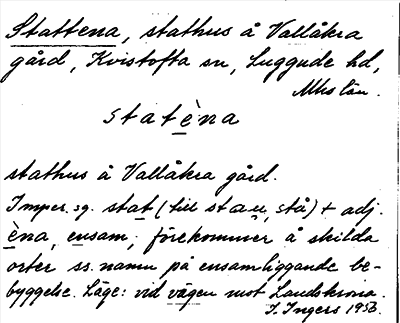 Stattena, stathus å Vallåkra
gård, Kvistofta sn, Luggude hd,
Mlhs län.
statèna
stathus å Vallåkra gård.
Imper. sg. stat (till stau, stå) + adj.
èna, ensam; förekommer å skilda
orter ss. namn på ensamliggande be-
byggelse. Läge: vid vägen mot Landskrona.
I. Ingers 1956.